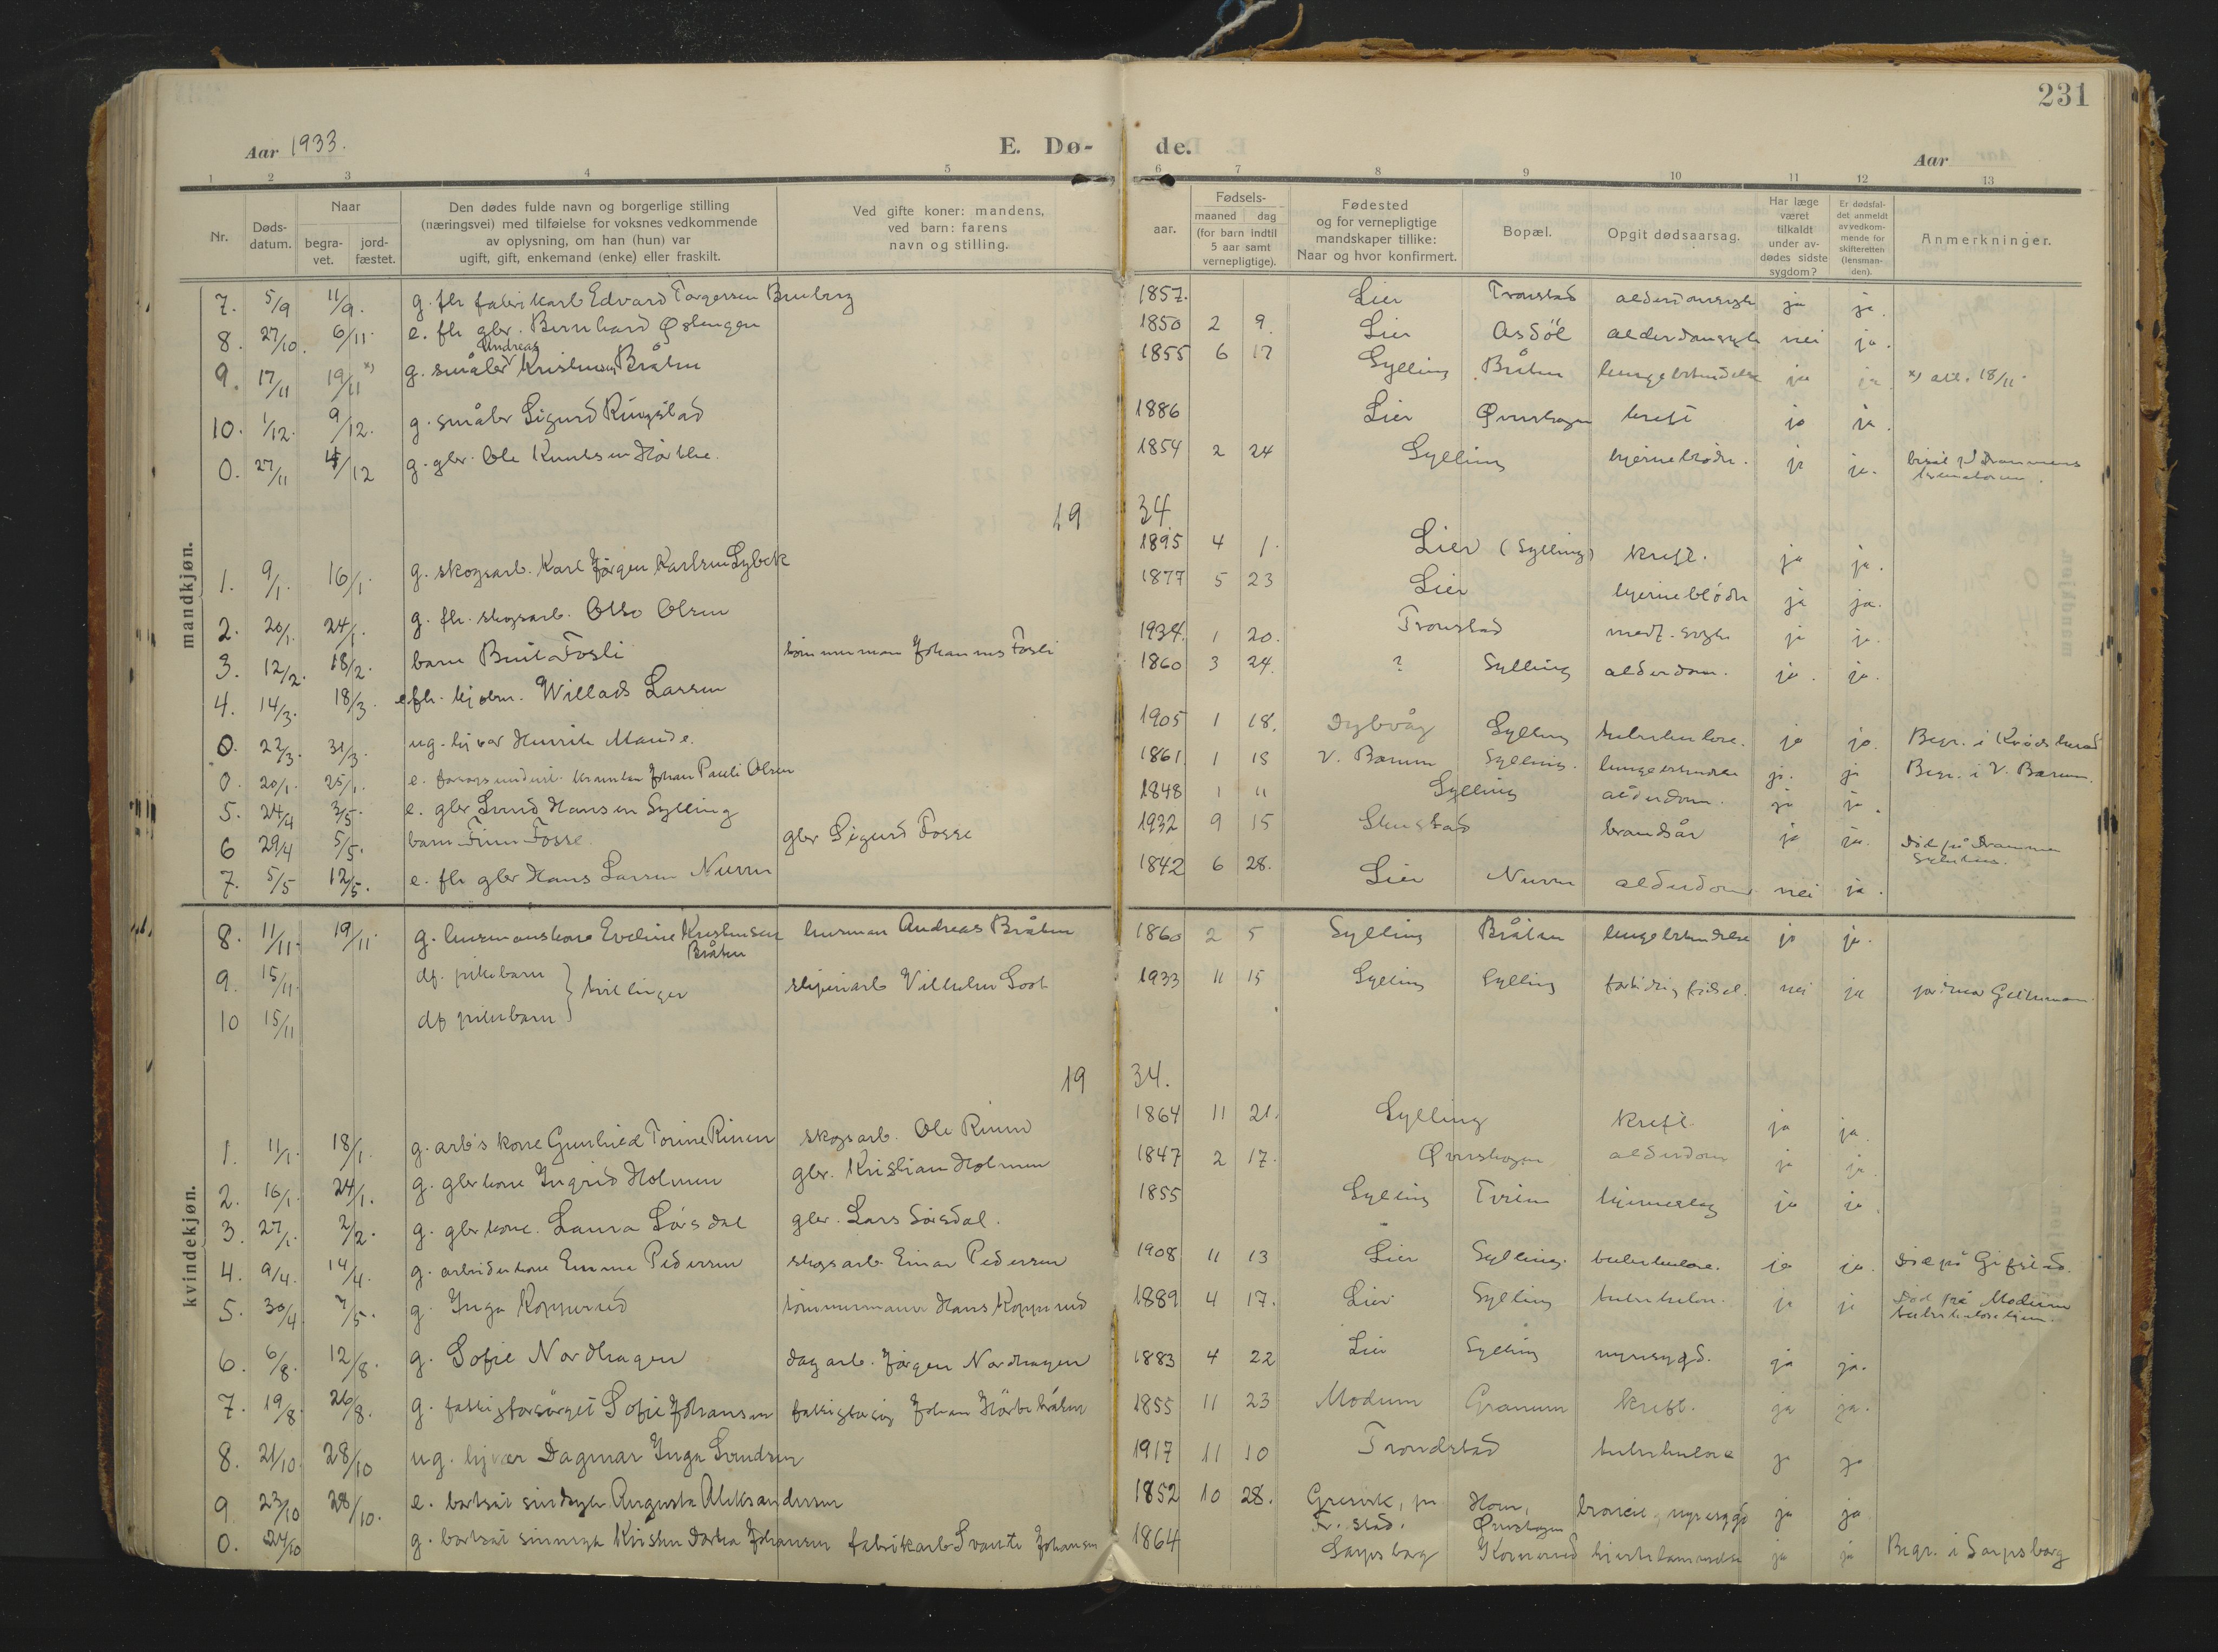 231
Aar 1933.
E. Dø- de.
Aar
1 2 3 4 5 6 7 8 9 10 11 12 13
Nr.
Døds-
datum.
Naar
begra-
vet.
jord-
fæstet.
Den dødes fulde navn og borgerlige stilling
(næringsvei) med tilføielse for voksnes vedkommende
av oplysning, om han (hun) var
ugift, gift, enkemand (enke) eller fraskilt.
Ved gifte koner: mandens,
ved barn: farens
navn og stilling.
aar.
Fødsels-
maaned dag
(for barn indtil
5 aar samt
vernepligtige).
Fødested
og for vernepligtige
mandskaper tillike:
Naar og hvor konfirmert.
Bopæl.
Opgit dødsaarsag.
Har læge
været
tilkaldt
under av-
dødes sidste
sygdom?
Er dødsfal-
det anmeldt
av vedkom-
mende for
skifteretten
(lensman-
den).
Anmerkninger.
mandkjøn.
7. 5/9 11/9. g. fhr fabrikarb Edvard Torgersen 1857. Lier Tronstad ja ja.
8. 27/10. 6/11. e. fhr gbr. Bernhard Østengen 1850 2 9. Lier Asdöl nei ja.
Andreas
9. 17/11 19/11 x) g. småbr Kristensen Bråten 1855 6 17 Sylling Bråten lungebetendelse ja ja x) 18/11.
10. 1/12. 9/12. g. småbr Sigurd Ringstad 1886 Lier kreft ja ja.
0. 27/11 /12 g. gbr. Ole Knutsen 1854 2 24 Sylling hjerneblödn. ja ja. Drammens
19 34
1. 9/1. 16/1. g. skogsarb. Karl Jörgen Karlsen Lybeck 1895 4 1. Lier (Sylling) kreft. ja ja.
2. 20/1. 24/1. g. fhr. skogsarb. Otto Olsen 1877 5 23 Lier hjerneblödn ja ja.
3. 12/2. 18/2. barn Fosli tömmermann Johannes Fosli 1934. 1 20. Tronstad ja ja.
4. 14/3. 18/3. Willads Larsen 1860 3 24. ? Sylling alderdom. ja. ja.
0. 22/3. 31/3. ug. Henrik 1905 1 18. Dybvåg Sylling tuberkulose. ja ja. Begr. i Krödsherad
0. 20/1. 25/1. e. Johan Pauli Olsen 1861 1 18 V. Bærum Sylling. lungebetendelse ja. ja Begr. i V. Bærum.
5. 24/4 3/5. e. gbr Hansen Sylling 1848 1 11 Sylling alderdom. ja ja.
6 29/4 5/5. barn Finn Fosse. gbr Sigurd Fosse 1932 9 15 brandsår ja ja. Död på Drammen
Sykehus.
7. 5/5 12/5. e. fhr gbr Hans Larsen 1842 6 28. Lier alderdom nei ja.
kvindekjøn.
8. 11/11. 19/11 g. husmannskone Eveline Kristensen husman Andreas Bråten 1860 2 5 Sylling Bråten lungebetendelse ja ja.
Bråten
9. 15/11. df. pikebarn } tvillinger Vilhelm 1933 11 15 Sylling Sylling fortidig födsel. nei ja
10 15/11 df pikebarn
19 34.
1. 11/1. 18/1. g. arb's kone Torine Rinen skogsarb. Ole Rinen 1864 11 21. Sylling kreft. ja ja.
2. 16/1. 24/1. g. gbrkone Ingrid Holmen gbr. Kristian Holmen 1847 2 17. alderdom ja ja.
3. 27/1. 2/2. g. gbrkone. Laura Sörsdal gbr. Lars Sörsdal. 1855 Sylling hjerneslag ja ja.
4. 9/4. 14/4. g. arbeiderkone Emma Pedersen skogsarb. Einar Pedersen 1908 11 13 Lier Sylling. tuberkulose. ja ja.
5. 30/4 7/5. g. Inga Kopperud tömmermann Hans Kopperud 1889 4 17. Lier Sylling tuberkulose. ja ja Död på Modum
tuberkulosehjem.
6. 6/8. 12/8. g. Sofie Nordhagen dagarb. Jörgen Nordhagen 1883 4 22 Lier Sylling nyresygd. ja ja.
7. 19/8. 26/8. g. fattigforsörget Sofie Johansen Johan 1855 11 23 Modum Granum kreft. ja ja.
8. 21/10 28/10 ug. Dagmar Inga Svendsen 1917 11 10 Trondstad tuberkulose ja ja
9 23/10 28/10. e. bortsat sindsyk Augusta Aleksandersen 1852 10 28. nyresygd ja ja
Fr. stad.
0. 24/10 g. bortsat Johansen fabrikarb Johansen 1864 Sarpsborg ja ja Begr. i Sarpsborg